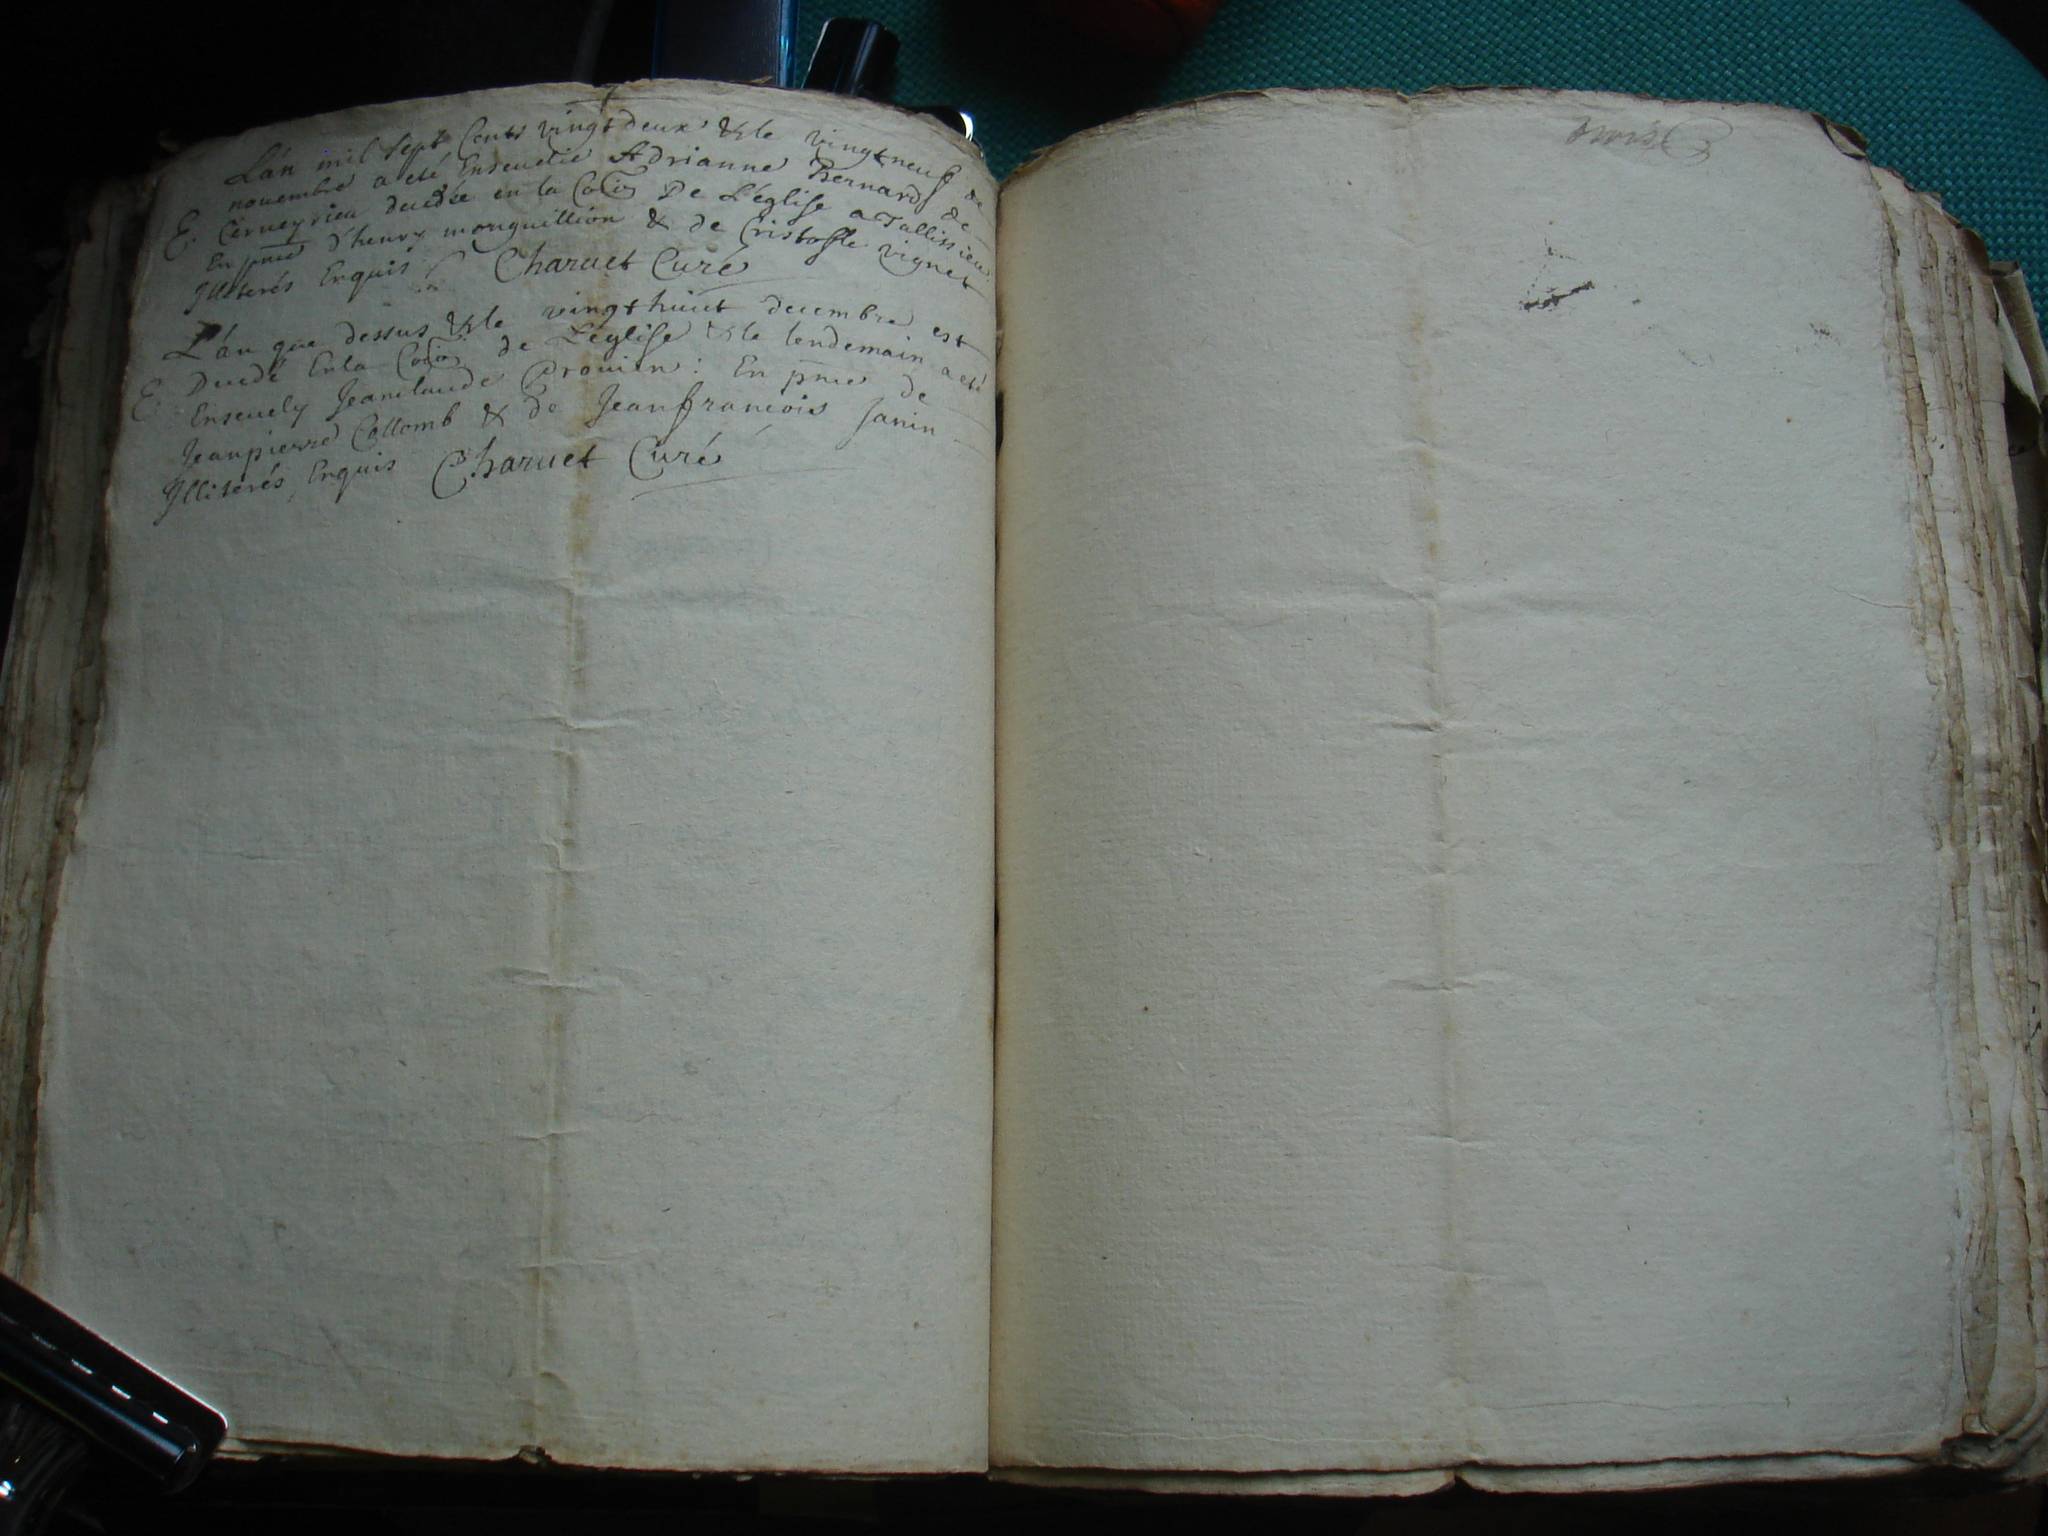 L'an mil sept Cents vingt deux & le vingt neuf de
novembre a été Enseuelie Adrianne Bernard de
E. Cerveyrieu decedée en la Coôn De L'église a Tallissieu
En pnce d'henry monguillion & de Cristofle vignet
Illiterés Enquis Charuet Curé
L'an que dessus & le vingt huict decembre est
E. Decedé En la Coôn de L'église & le lendemain a été
Enseuely Jeanclaude Prouin : En pnce de
Jeanpierre Collomb & de Jeanfrancois Janin
Illiterés Enquis Charuet Curé